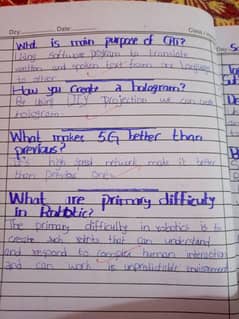 Day Date: Class /
What is main purpose of CAT?
Using software program to translate
written and spoken text from one language
to other.
How you create a hologram?
By using DIY projection we can create
hologram.
What makes 5G better than
previous?
It's high speed network make it better
than previous one.
What are primary difficulty
in Robotic?
The primary difficulty in robotics is to
create such robots that can understand
and respond to complex human interaction
and can work in unpredictable environment